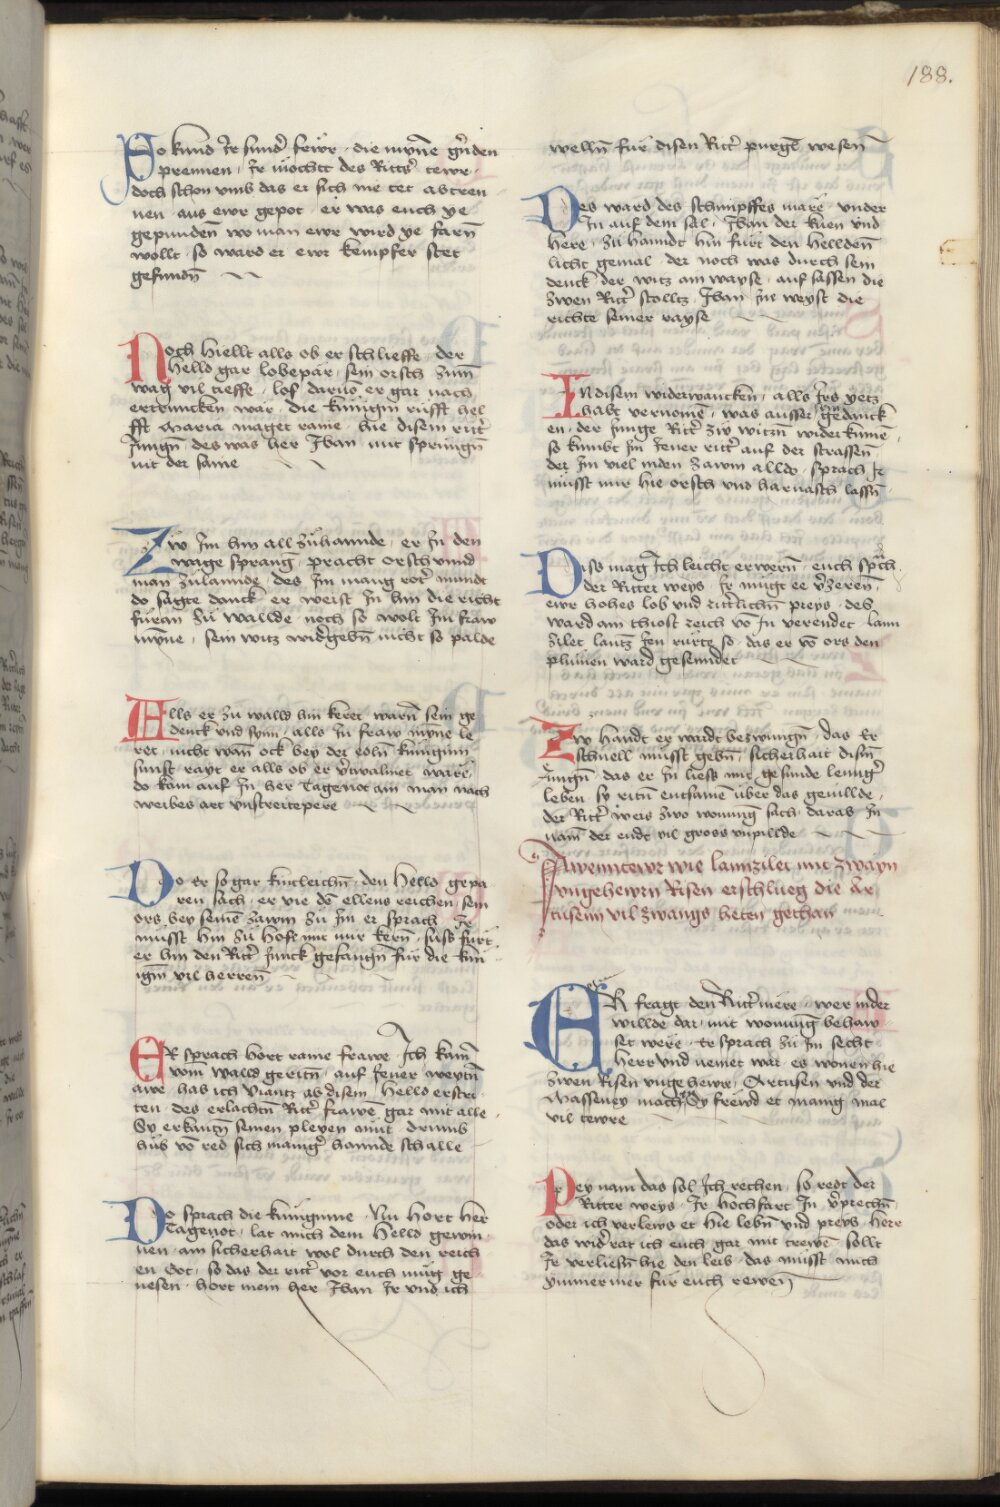 188.
So kund Ir sunder fewr · die mynne gnden
prennen · Ir mochtt des Ritters tewr ·
doch schon vmb das er sich nie tet abtren
nen · aus ewr gepot · er was euch ye
gepunden wo man ewr wird ye farn
wollt · so ward er ewr kempfer stet
gefunden
Noch hiellt alls ob er schlieffe · der
Helld gar lobepär · sein orsch zum
wag vil tieffe · lof darum er gar nach
ertruncken war · die künigin rüfft hel
fft Maria maget raine · hie disem ritter
Jungen · des was her Jban mit springen
nit der saine
Zw Im hin all zuhannde · er In den
wage sprang · pracht orsch vnnd
man zulannde · des Im mang roter mundt
do sagte danck · er weist In hin die richt
füran zu wallde · noch so wolt Im fraw
mynne · sein witz widergeben nicht so palde
Alls er zu walld hin keret warn sein ge
denck vnd synn · alls In fraw mynne le
ret · nicht wann ock bey der edln künigin
sunst rayt er alls ob er vertwalmet wäre
do kam auf In her Tagenot ain man nach
weibes art vnstreitepere
Do er so gar kintleichen · den Helld gepa
ren sach · er vie den ellens reichen · sein
ors bey seinem zawm zu Im er sprach · Ir
müsst hin zu hofe mit mir kern · sust fürt
er hin den Ritter Junck gefangen für die kün
igin vil herren
Er sprach hort raine frawe · Ich kam
vom walld geriten · auf Jener weyten
awe · has ich Viantz ab disem Helld erstri
ten · des erlachten Ritter frawen gar mit alle ·
Sy erkannten seinen pleyen amut · drumb
hub von red sich maniger hannde schalle
Do sprach die künigunne · Nu hort her
Tagenot · lat mich dem Helld gewin
nen · am sicherhait wol durch den reich
en Got · so das der ritter vor euch mug ge
nesen · hort mein her Jban Ir vnd ich
wellen für disen Ritter purgen wesen
Des ward des schimpffes märe · vnder
In auf dem sal · Jban der küen vnd
here · zu hanndt hin fürt den hellden
licht gemal · der noch was durch sein
denck · der witz am wayse · auf sassen die
zwen Ritter stolltz · Jban In weyst die
richte seiner rayse
In disem widerwancken · alls Irs yetz
habt vernomen · was ausser gedanck
en · der Junge Ritter zw witzen widerkumen ·
so kumbt Im Jener ritter auf der strassen ·
der Im viel inden zawm alldo · sprach Ir
müsst mir hie orsch vnd harnasch lassen
Diss mag Ich leicht erwern · euch sprch
der Ritter weys · Ir mügt ee verzeren
ewr hohes lob vnd ritterlichen preys · des
ward am thiost reich von In verendet · lann
zilet lantz Jen rürte so · das er von ors den
plumen ward gesenndet
Zw handt er wardt bezwungen · das Er
schnell müsst geben · sicherhait disem
Jungen · das er In liess mit gesunde lenger
leben · sy ritn entsamen über das geuillde ·
der Ritter weis zwo wonung sach · daras In
nam der endt vil gross vnpillde
Awentewr wie lannzilet mit zwayn
vngehewrn Risen erschlueg die Ar
tusein vil zwangs heten gethan
Er fragt den Ritter mere · wer inder
willde dar · mit wonung behaw
set were · er sprach zu Im secht
herr vnd nemet war · es wonen hie
zwen Risen vngehewr · Artusen vnd der
Massenney mach Sy frewd et manig mal
vil tewre
Pey nam das sol Ich rechen · so redt der
Ritter weys · Ir hochfart In verprechen ·
oder ich verlews et hie leben vnd preys · herr
das widerrat ich euch gar mit trewen · sollt
Ir verliesen hie den leib · das müsst mich
ymmer mer für euch rewen